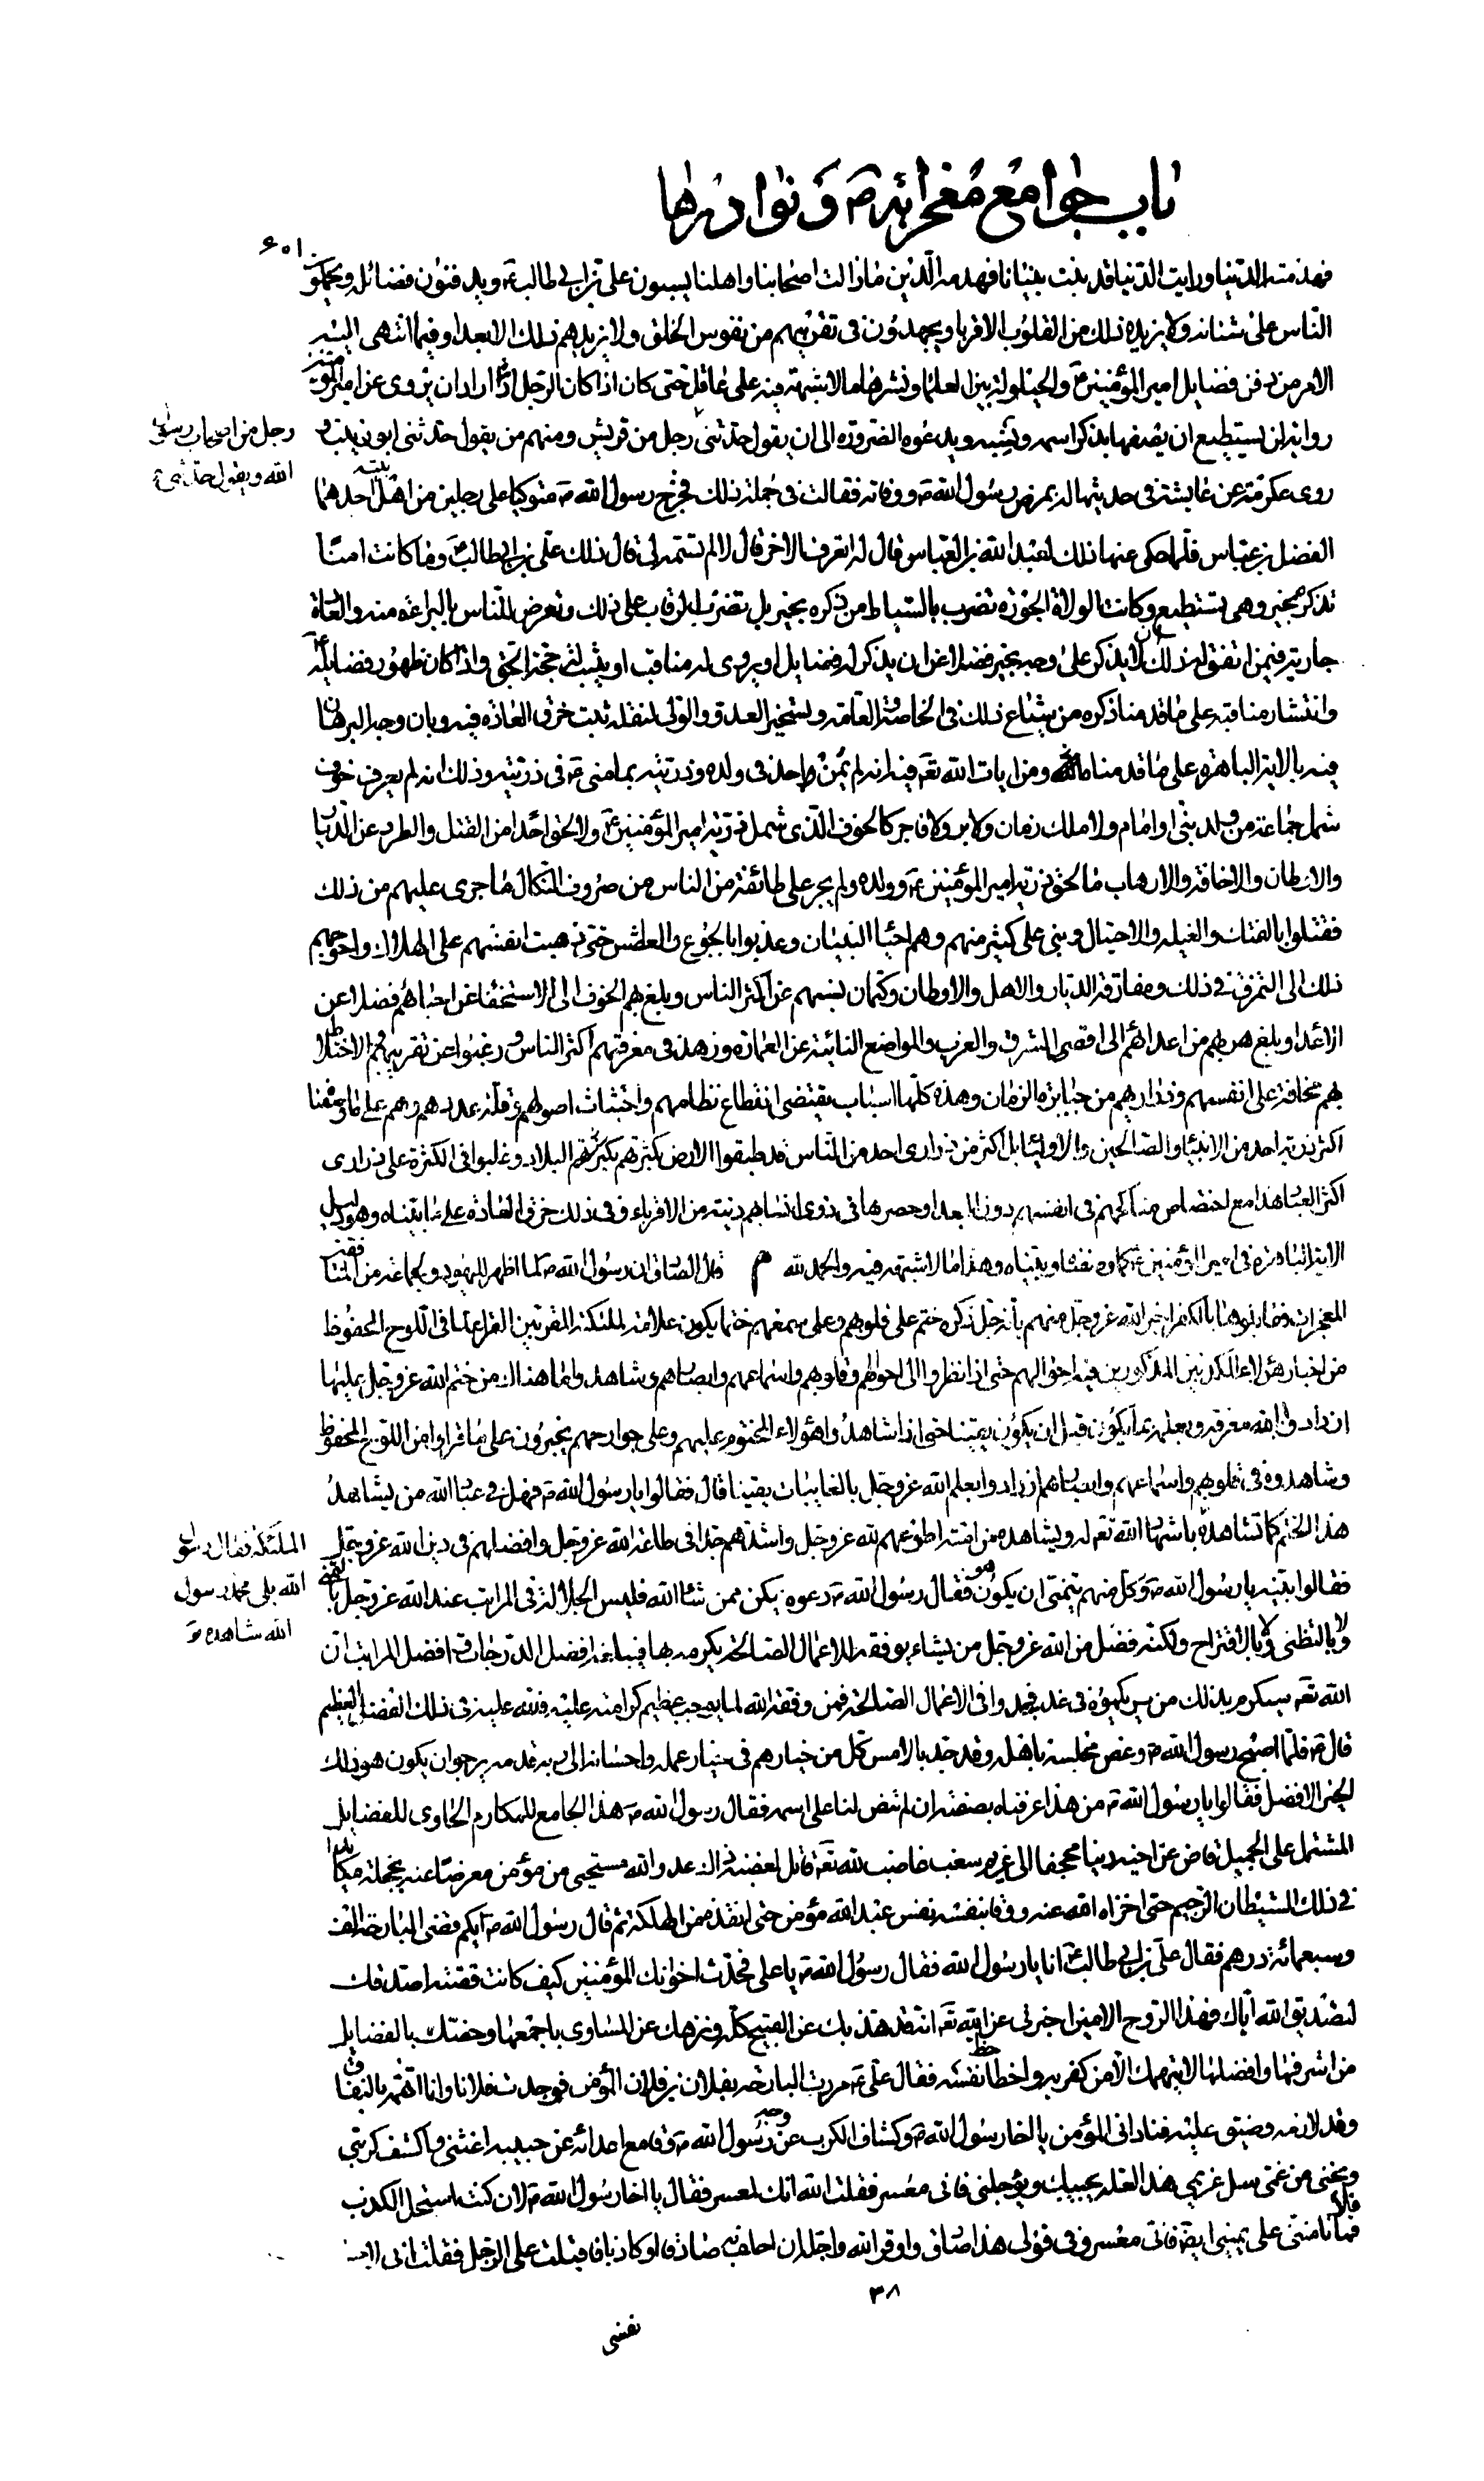 باب جوامع معجزاته ص و نوادرها
٦٠١
فهدمته الدنيا ورايت الدنيا قد بنت بنيانا فهدمه الدين ما زالت اصحابنا واهلنا يسبون علي بن ابي طالب ع ويدفنون فضائله ويحملون
الناس على شنانه ولا يزيده ذلك من القلوب الا قربا ويجهدون في تقربهم من نفوس الخلق ولا يزيدهم ذلك الا بعدا وفيما انتهى اليه
الامر من دفن فضايل امير المؤمنين ع والحيلولة بين العلماء ونشرها ما لا شبهة فيه على عاقل حتى كان اذا كان الرجل اذا اراد ان يروي عن امير المؤمنين
رواية لن يستطيع ان يضيفها بذكر اسمه ونسبه ويدعوه الضرورة الى ان يقول حدثني رجل من قريش ومنهم من يقول حدثني ابو زينب و
رجل من اصحاب رسول
الله ويقول حدثني
روى عكرمة عن عايشة في حديثها له بمرض رسول الله ص ووفاته فقالت في جملة ذلك فخرج رسول الله ص متوكيا على رجلين من اهل بيته احدهما
الفضل بن عباس فلما حكى عنها ذلك لعبد الله بن العباس قال له اتعرف الاخر قال لا لم تسمه لي قال ذلك علي بن ابي طالب ع وما كانت امنا
تذكره بخير وهي تستطيع وكانت الولاة الجورة تضرب بالسياط من ذكره بخير بل تضرب الرقاب على ذلك وتعرض للناس بالبراءة منه والعادة
جارية فيمن اتفق له ذلك ان لا يذكر على وجه بخير فضلا عن ان يذكر له فضايل او يروى له مناقب او يثبت له حجة بحق واذا كان ظهور فضايله ع
وانتشار مناقبه على ما قدمنا ذكره من شياع ذلك في الخاصة والعامة وتسخير العدو والولي لنقله ثبت خرق العادة فيه وبان وجه البرهان
فيه بالاية الباهرة على ما قدمناه ومن ايات الله تعه فيه انه لم يمن احد في ولده وذريته بما مني ع في ذريته وذلك انه لم يعرف خوف
شمل جماعة من ولد نبي او امام ولا ملك زمان ولا بر ولا فاجر كالخوف الذي شمل ذرية امير المؤمنين ع ولا لحق احدا من القتل والطرد عن الديار
والاوطان والاخافة والارهاب ما لحق ذرية امير المؤمنين ع وولده ولم يجر على طائفة من الناس من صروف النكال ما جرى عليهم من ذلك
فقتلوا بالفتك والغيلة والاحتيال وبني على كثير منهم وهم احياء البنيان وعذبوا بالجوع والعطش حتى ذهبت انفسهم على الهلاك واحوجهم
ذلك الى التمزق في ذلك ومفارقة الديار والاهل والاوطان وكتمان نسبهم عن اكثر الناس وبلغ بهم الخوف الى الاستخفاء عن احبائهم فضلا عن
الاعداء وبلغ هربهم من اعدائهم الى اقصى الشرق والغرب والمواضع النائية عن العمارة وزهد في معرفتهم اكثر الناس ورغبوا عن تقريبهم والاختلاط
بهم مخافة على انفسهم وذراريهم من جبابرة الزمان وهذه كلها اسباب يقتضي انقطاع نظامهم واجتثاث اصولهم وقلة عددهم وهم على ما وصفنا
اكثر ذرية احد من الانبياء والصالحين والاولياء بل اكثر من ذراري احد من الناس قد طبقوا الارض بكثرتهم البلاد وغلبوا في الكثرة على ذراري
اكثر العباد هذا مع اختصاص مناكحهم في انفسهم دون البعداء وحصرها في ذوي انسابهم دنية من الاقرباء وفي ذلك خرق العادة على ما بيناه وهو دليل
الاية الباهرة في امير المؤمنين ع كما وصفناه وبيناه وهذا ما لا شبهة فيه والحمد لله م قال الصادق ان رسول الله ص لما اظهر لليهود ولجماعة من المنافقين
المعجزات فقابلوها بالكفر اخبر الله عز وجل عنهم بانه جل ذكره ختم على قلوبهم وعلى سمعهم ختما يكون علامة لملئكته المقربين القراء لما في اللوح المحفوظ
من اخبار هؤلاء المكذبين المذكورين فيه احوالهم حتى اذا نظروا الى احوالهم وقلوبهم واسماعهم وابصارهم وشاهدوا ما هناك من ختم الله عز وجل عليها
ازدادوا بالله معرفة وبعلمه بما يكون قبل ان يكون يقينا حتى اذا شاهدوا هؤلاء المختوم عليهم وعلى جوارحهم يخبرون على ما قراوا من اللوح المحفوظ
وشاهدوه في قلوبهم واسماعهم وابصارهم ازدادوا بعلم الله عز وجل بالغايبات يقينا قال فقالوا يا رسول الله ص فهل في عباد الله من يشاهد
هذا الختم كما تشاهده باشهاد الله تعه له ويشاهده من امته اطوعهم لله عز وجل واشدهم جدا في طاعة الله عز وجل وافضلهم في دين الله عز وجل
الملئكة فقال رسول
الله بلى محمد رسول
الله شاهده
فقالوا بينه يا رسول الله ص وكل منهم يتمنى ان يكون هو فقال رسول الله ص دعوه يكن ممن شاء الله فليس الجلالة في المراتب عند الله عز وجل بالتمني
ولا بالتظني ولا بالاقتراح ولكنه فضل من الله عز وجل من يشاء يوفقه للاعمال الصالحة يكرمه بها فيبلغه افضل الدرجات وافضل المراتب ان
الله تعه سيكرم بذلك من يريكموه في غد فجدوا في الاعمال الصالحة فمن وفقه الله لما يوجب عظيم كرامته عليه فلله عليه في ذلك الفضل العظيم
قال ع فلما اصبح رسول الله ص وغص مجلسه باهله وقد جد بالامس كل من خيارهم في خيار عمله واحسانه الى ربه قدمه يرجو ان يكون هو ذلك
الخير الافضل فقالوا يا رسول الله ص من هذا عرفناه بصفته ان لم تنص لنا على اسمه فقال رسول الله ص هذا الجامع للمكارم الحاوي للفضايل
المشتمل على الجميل قاض عن اخيه دينا مجحفا الى غريم سغب غاضب لله تعه قاتل لغضبه ذاك عدو الله مستحيي من مؤمن معرضا عنه بخجلة مكايدا
في ذلك الشيطان الرجيم حتى اخزاه الله عنه ووقا بنفسه نفس عبد الله مؤمن حتى انقذه من الهلكة ثم قال رسول الله ص ايكم قضى البارحة الف
وسبعمائة درهم فقال علي بن ابي طالب ع انا يا رسول الله فقال رسول الله ص يا علي فحدث اخوانك المؤمنين كيف كانت قصته اصدقك
لتصديق الله اياك فهذا الروح الامين اخبرني عن الله تعه انه قد هذبك عن القبيح كله ونزهك عن المساوي باجمعها وخصك بالفضايل
من اشرفها وافضلها لا يتهمك الا من كفر به واخطا حظ نفسه فقال علي ع مررت البارحة بفلان بن فلان المؤمن فوجدت فلانا وانا اتهمه بالنفاق
وقد لازمه وضيق عليه فناداني المؤمن يا اخا رسول الله ص وكشاف الكرب عن وجه رسول الله ص وقامع اعدائه عن حبيبه اغثني واكشف كربتي
ونجني من غمي سل غريمي هذا لعله يجيبك ويؤجلني فاني معسر فقلت الله انك لمعسر فقال يا اخا رسول الله ص لان كنت استحل الكذب
فلا تامني على يميني ايضا فاني معسر وفي قولي هذا صادق واوقر الله واجله ان احلف به صادقا او كاذبا فاقبلت على الرجل فقلت اني لاجل
٣٨
نفسي